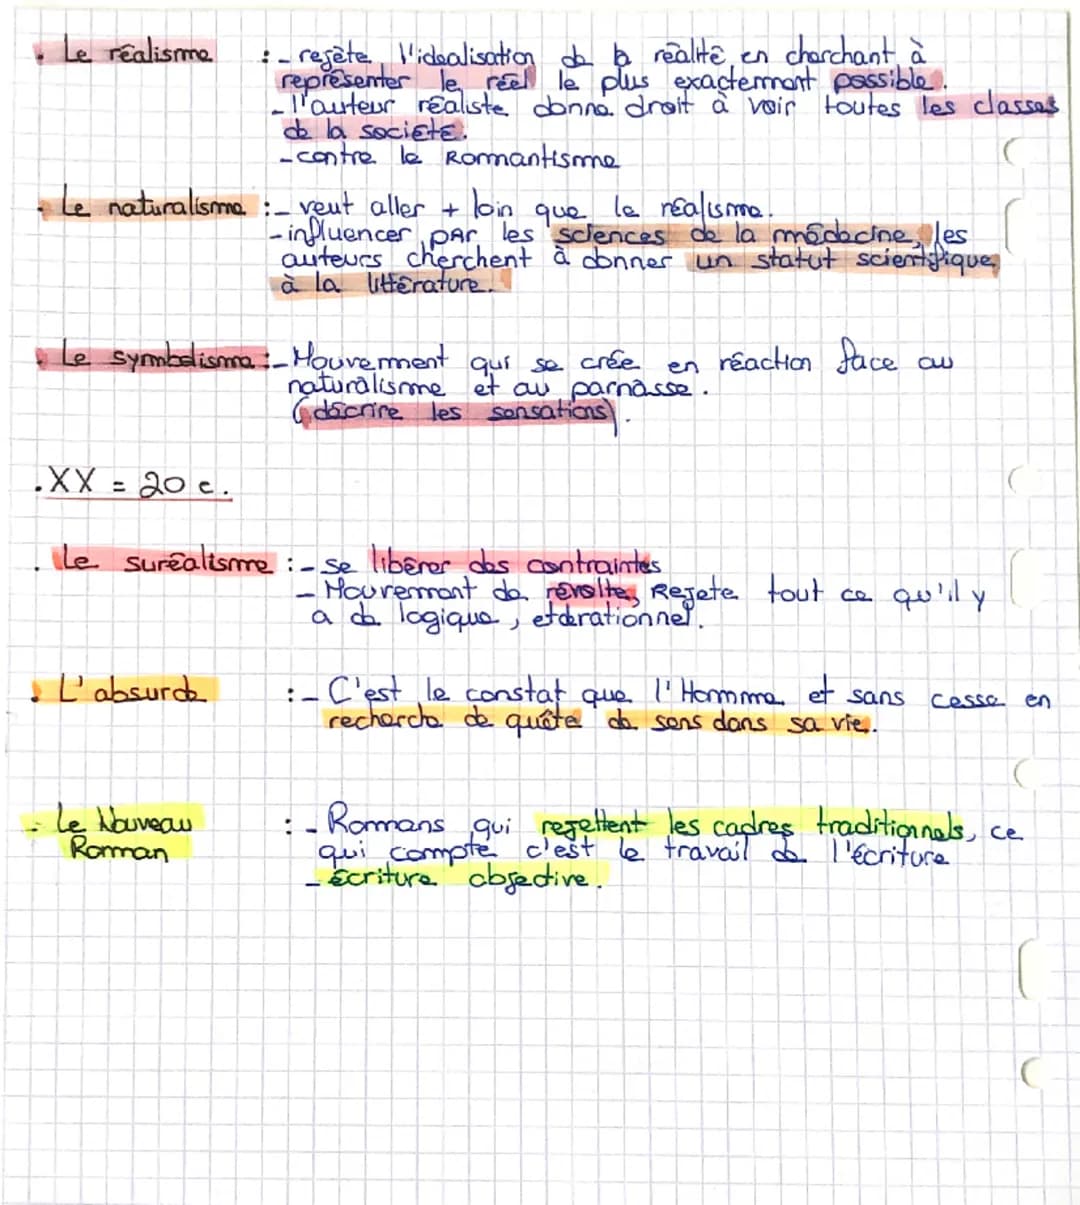 . Le réalisme : - rejète l'idealisation de la réalité en cherchant à
représenter le réel le plus exactemment possible.
- l'auteur réaliste donne droit à voir toutes les classes
de la société.
- contre le Rommantisme
. Le naturalisme : - veut aller + loin que le réalisme.
- influencer pAr les sciences de la médecine, les
auteurs cherchent à donner un statut scientifique,
à la littérature.
. Le symbolisme : - Mouvemment qui se crée en réaction face au
naturalisme et au parnasse.
(décrire les sensations).
. XX = 20 e.
. Le suréalisme : - se libérer des contraintes
- Mouvemment de révolte, Rejete tout ce qu'il y
a de logique, et de rationnel.
. L'absurde : - C'est le constat que l'Homme et sans cesse en
recherche de quête de sens dans sa vie.
- Le Nouveau : - Romans qui rejettent les cadres traditionnels, ce
Roman qui compte c'est le travail de l'écriture
- écriture objective.